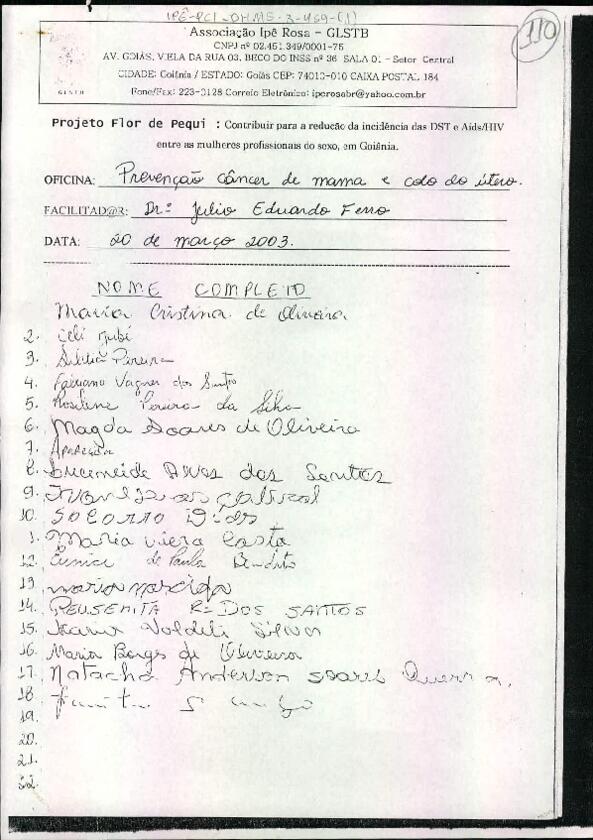 IPÊ-PCI-OHMS-3-459-(1)
110
Associação Ipê Rosa – GLSTB
CNPJ nº 02.451.349/0001-75
AV. GOIÁS, VIELA DA RUA 03, BECO DO INSS nº 36 SALA 01 - Setor Central
CIDADE: Goiânia / ESTADO: Goiás CEP: 74010-010 CAIXA POSTAL 184
Fone/Fax: 223-0128 Correio Eletrônico: iperosabr@yahoo.com.br
GLSTB
Projeto Flor de Pequi : Contribuir para a redução da incidência das DST e Aids/HIV
entre as mulheres profissionais do sexo, em Goiânia.
OFICINA: Prevenção câncer de mama e colo do útero.
FACILITAD@R: Drº Julio Eduardo Ferro
DATA: 20 de março 2003.
NOME COMPLETO
Maria Cristina de Oliveira
2.
3. Pereira
4. Fabiano Vagner dos Santos
5. Rosilene Pereira da Silva
6. Magda Soares de Oliveira
7. Aparecida
8. Lucemeide Alves dos Santos
9.
10. SOCORRO Dias
1. Maria Viera Costa
12. Eunice de Paula Benedito
13. maria
14. REUSENITA R= DOS SANTOS
15. Valdeli Silva
16. Maria Borges de Oliveira
17. Natacha Anderson soares Guerra.
18
19.
20.
21.
22.